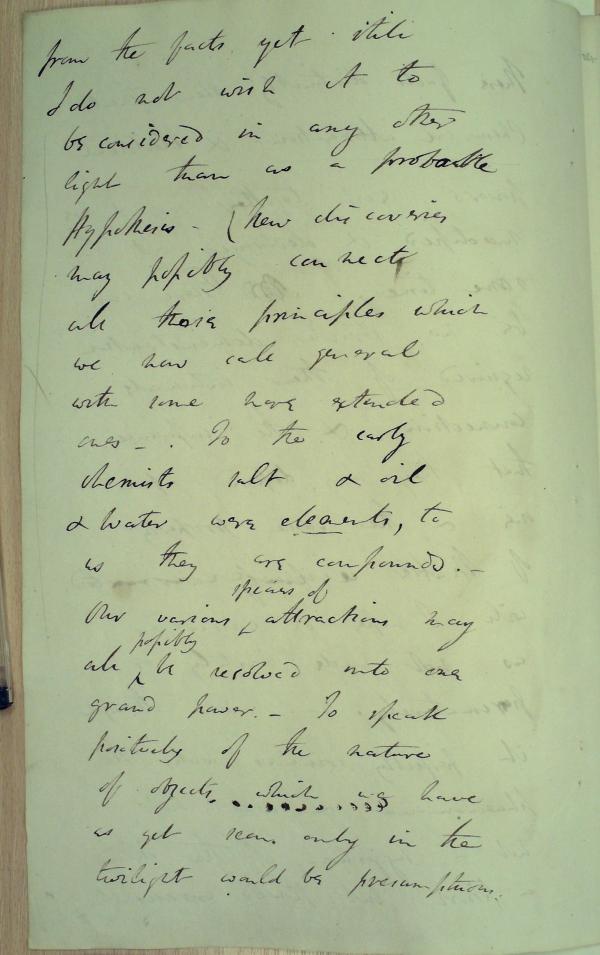 from the facts yet still
I do not wish it to
be considered in any other
light than as a probable
Hypothesis - (New discoveries
may possibly connect
all these principles which
we now call general
with some more extended
ones - . To the early
chemists salt & oil
& Water were elements, to
us they are compounds. -
species of
Our various ^ attractions may
possibly
all ^ be resolved into one
grand power. - To speak
positively of the nature
of objects which we have
as yet seen only in the
twilight would be presumptuous.